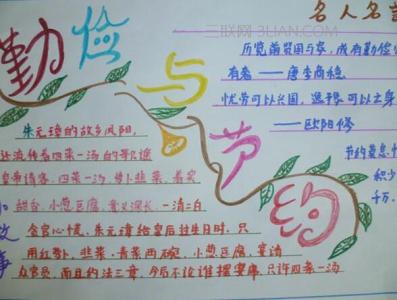 勤俭与节约
三联网 3LIAN.COM
名人名言
历览前贤国与家,成有勤俭
有奢——唐李商隐
忧劳可以兴国,逸豫可以亡身
——欧阳修
节约莫怠
积少
千万。
朱元璋的故乡凤阳,
还流传着四菜一汤的歌谣
皇帝请客,四菜一汤,萝卜韭菜,着实
甜香,小葱豆腐,意义深长,一清二白
贪官心慌。朱元璋给皇后过生日时,只
用红萝卜,韭菜,青菜两碗,小葱豆腐,宴请
众官员,而且约法三章,今后不论谁摆宴席,只许四菜一汤
故事